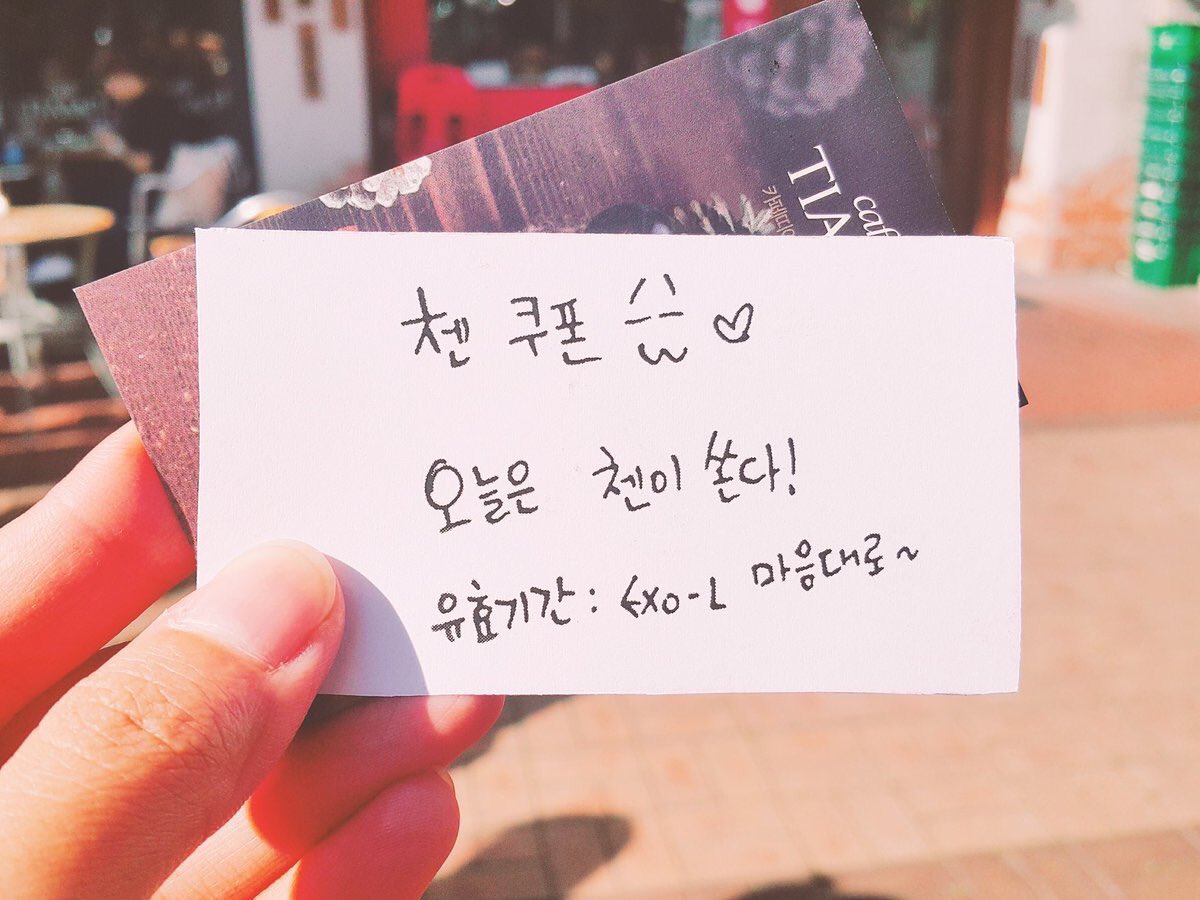 첸 쿠폰 ♡
오늘은 첸이 쏜다!
유효기간 : EXO-L 마음대로~
cafe
TIA
카페띠아